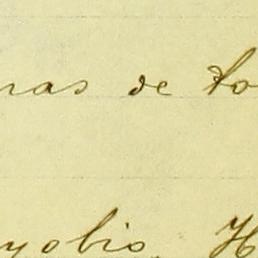 nas de to
yobis. H